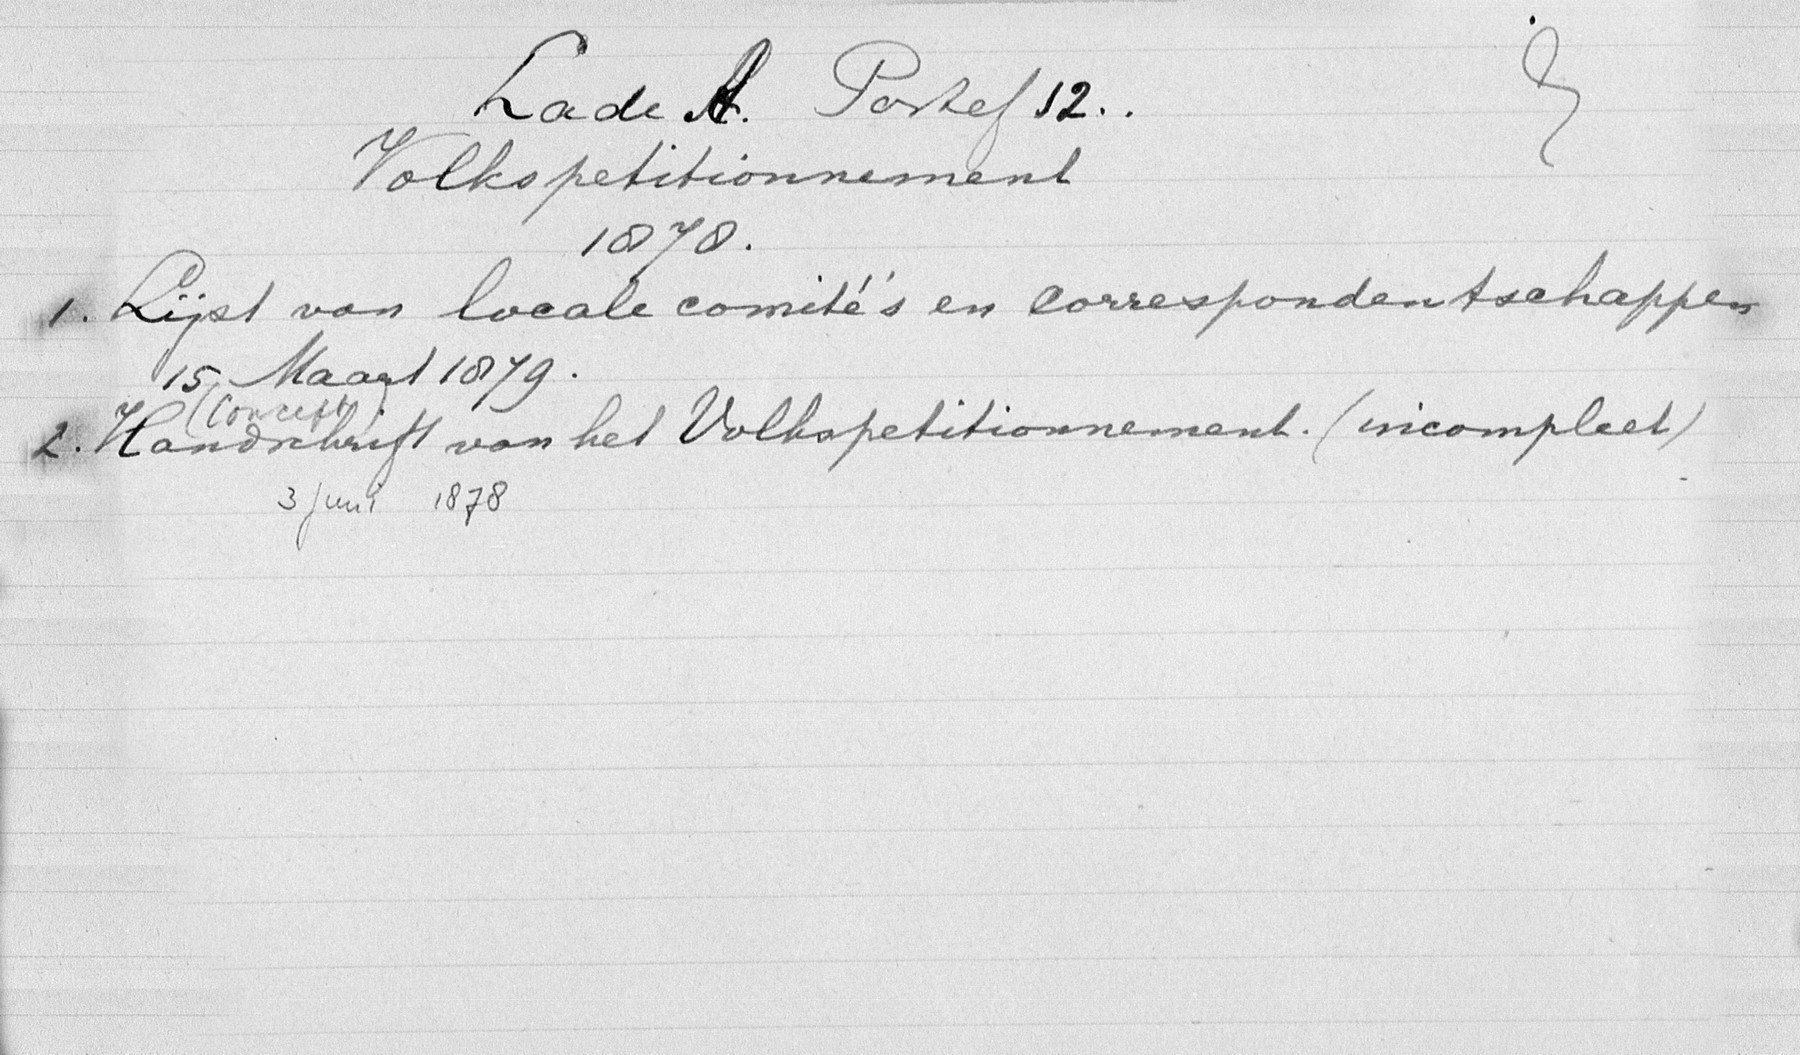 Lade A. Portef 12..
Volkspetitionnement
1878.
1. Lijst van locale comité's en correspondentschappen
15 Maart 1879.
(Concept)
2. Handschrift van het Volkspetitionnement. (incompleet)
3 juni 1878